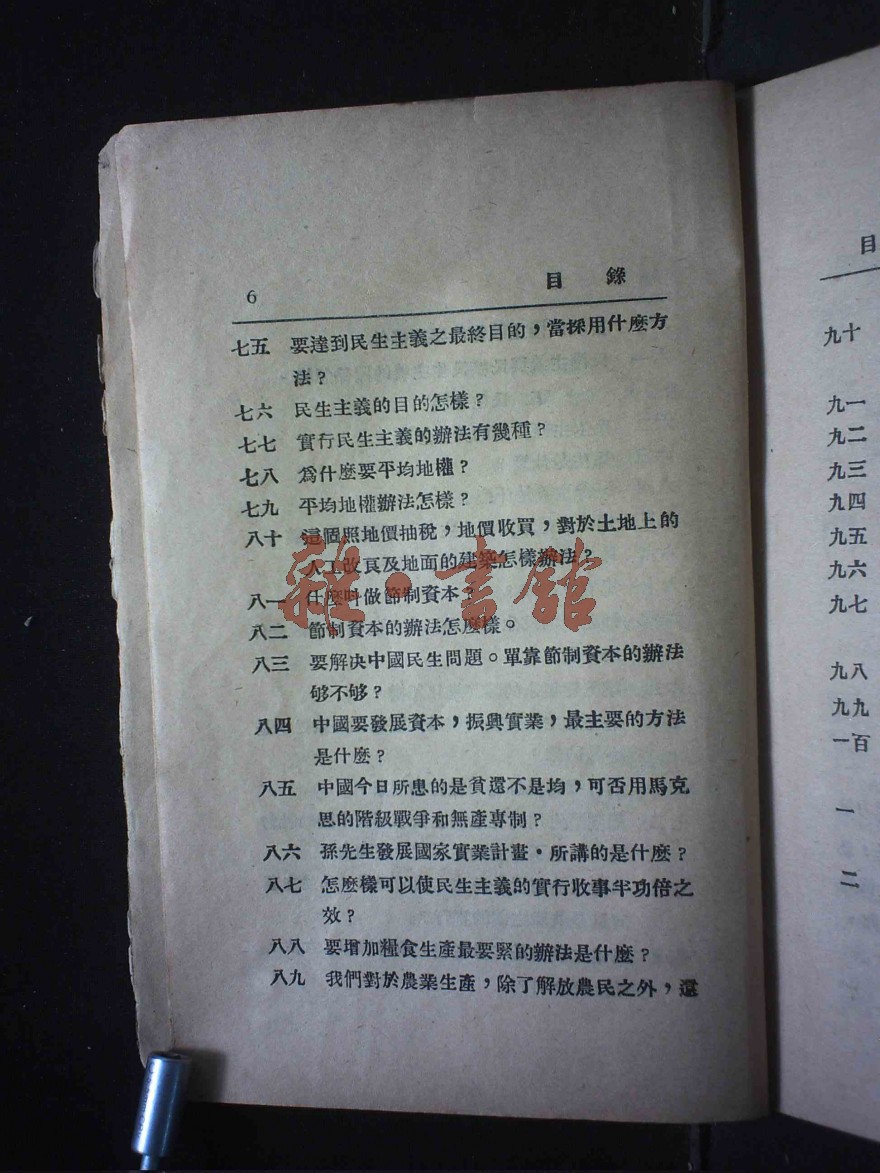 6 目錄
七五 要達到民生主義之最終目的，當採用什麼方
法？
七六 民生主義的目的怎樣？
七七 實行民生主義的辦法有幾種？
七八 爲什麼要平均地權？
七九 平均地權辦法怎樣？
八十 這個照地價抽稅，地價收買，對於土地上的
人工改良及地面的建築怎樣辦法？
八一 什麼叫做節制資本？
八二 節制資本的辦法怎麼樣。
八三 要解決中國民生問題。單靠節制資本的辦法
够不够？
八四 中國要發展資本，振興實業，最主要的方法
是什麼？
八五 中國今日所患的是貧還不是均，可否用馬克
思的階級戰爭和無產專制？
八六 孫先生發展國家實業計畫・所講的是什麼？
八七 怎麼樣可以使民生主義的實行收事半功倍之
效？
八八 要增加糧食生產最要緊的辦法是什麼？
八九 我們對於農業生產，除了解放農民之外，還
雜・書館
目
九十
九一
九二
九三
九四
九五
九六
九七
九八
九九
一百
一
二